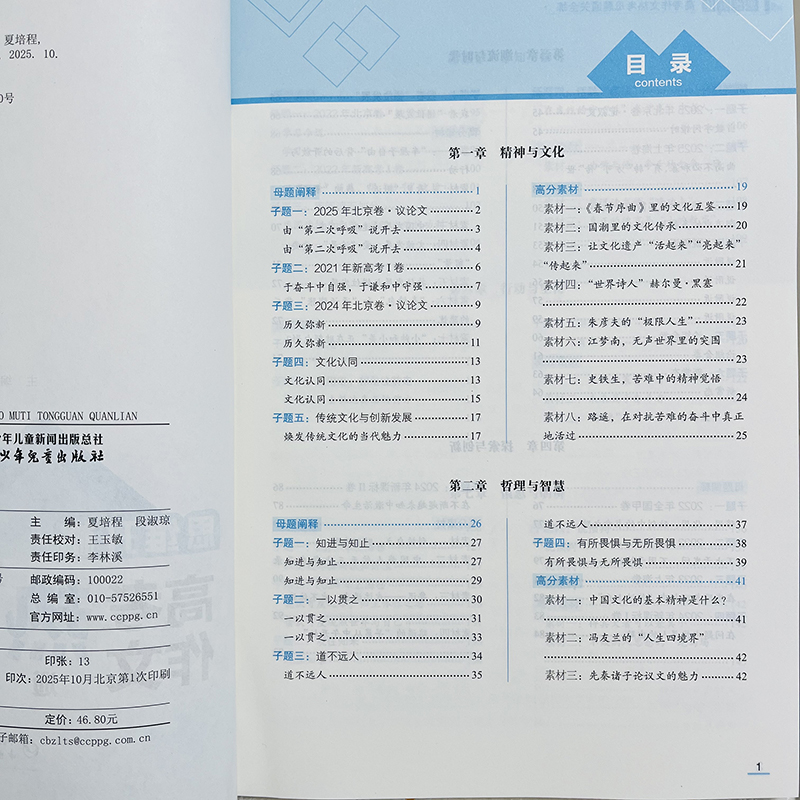 夏培程,
2025. 10.
0号
O MUTI TONGGUAN QUANLIAN
年儿童新闻出版总社
少年儿童出版社
主 编: 夏培程 段淑琼
责任校对: 王玉敏
责任印务: 李林溪
邮政编码: 100022
总 编 室: 010-57526551
官方网址: www.ccppg.cn
印张: 13
印次: 2025年10月北京第1次印刷
定价: 46.80元
子邮箱: cbzlts@ccppg.com.cn
目 录
contents
第一章 精神与文化
母题阐释 1
子题一: 2025年北京卷·议论文 2
由“第二次呼吸”说开去 3
由“第二次呼吸”说开去 4
子题二: 2021年新高考Ⅰ卷 6
于奋斗中自强,于谦和中守强 7
子题三: 2024年北京卷·议论文 9
历久弥新 9
历久弥新 11
子题四: 文化认同 13
文化认同 13
文化认同 15
子题五: 传统文化与创新发展 17
焕发传统文化的当代魅力 17
高分素材 19
素材一:《春节序曲》里的文化互鉴 19
素材二: 国潮里的文化传承 20
素材三: 让文化遗产“活起来”“亮起来”
“传起来” 21
素材四: “世界诗人”赫尔曼·黑塞
22
素材五: 朱彦夫的“极限人生” 23
素材六: 江梦南,无声世界里的突围
23
素材七: 史铁生,苦难中的精神觉悟
24
素材八: 路遥,在对抗苦难的奋斗中真正
地活过 25
第二章 哲理与智慧
母题阐释 26
子题一: 知进与知止 27
知进与知止 27
知进与知止 29
子题二: 一以贯之 30
一以贯之 31
一以贯之 33
子题三: 道不远人 34
道不远人 35
道不远人 37
子题四: 有所畏惧与无所畏惧 38
有所畏惧与无所畏惧 39
高分素材 41
素材一: 中国文化的基本精神是什么?
41
素材二: 冯友兰的“人生四境界”
42
素材三: 先秦诸子论议文的魅力 42
1